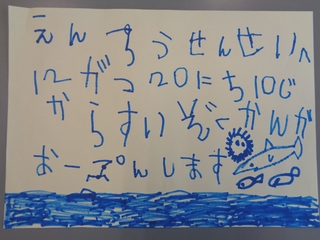 えんちょうせんせいへ
12がつ20にち10じ
からすいぞくかんが
おーぷんします